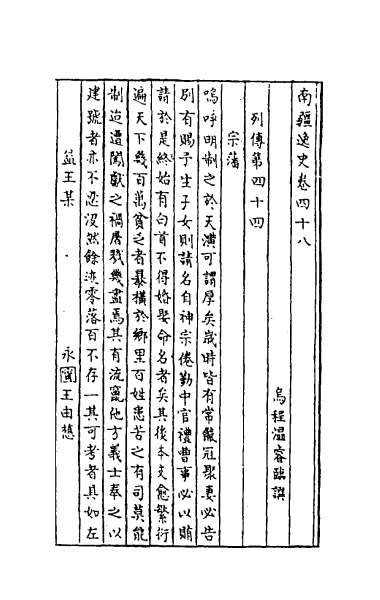 南疆逸史卷四十八
烏程溫睿臨譔
列傳第四十四
宗藩
嗚呼明制之於天潢可謂厚矣歲時皆有常餼冠聚妻必告
別有賜予生子女則請名自神宗倦勤中官禮曹事必以賄
請於是終始有白首不得婚娶命名者矣其後本支愈繁衍
遍天下幾百萬貧乏者暴橫於鄉里百姓患苦之有司莫能
制迨遭闖獻之禍屠戮幾盡焉其有流竄他方義士奉之以
建號者亦不忍沒然餘迹零落百不存一其可考者具如左
益王某
永國王由𣚴